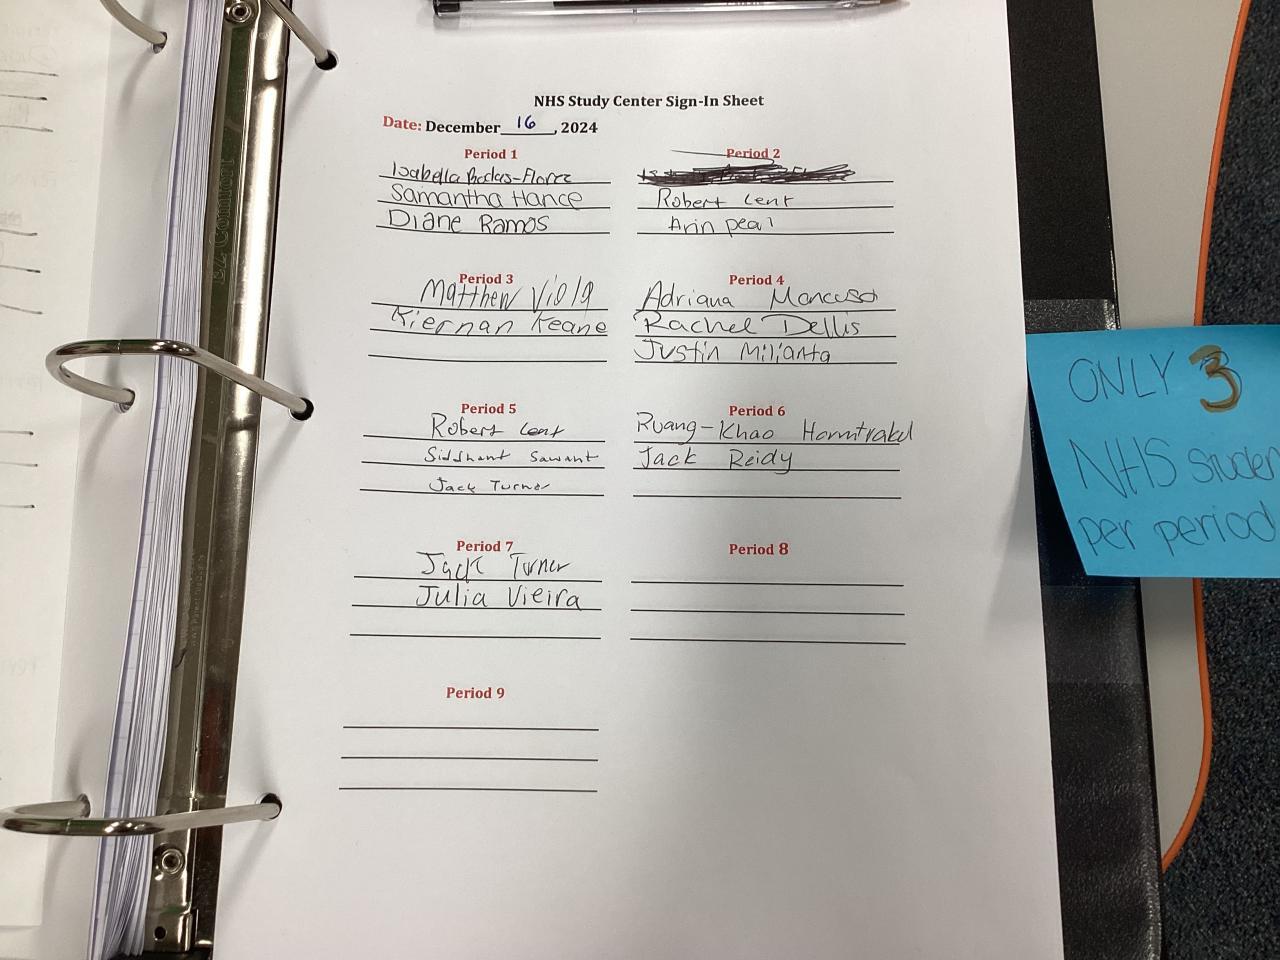 NHS Study Center Sign-In Sheet
Date: December 16, 2024
Period 1
Isabella
Samantha Hance
Diane Ramos
Period 2
Robert Lent
Arin
Period 3
Matthew Viola
Kiernan Keane
Period 4
Adriana Mancuso
Rachel Dellis
Justin Milianta
Period 5
Robert Lent
Siddhant Sawant
Jack Turner
Period 6
Ruang-Khao
Jack Reidy
Period 7
Jack Turner
Julia Vieira
Period 8
Period 9
ONLY 3
NHS
per period